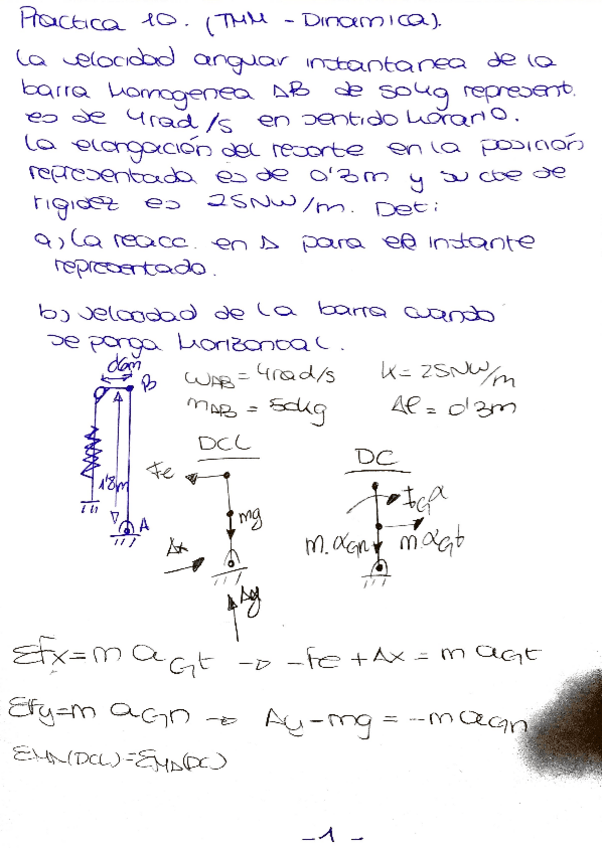 Practica 10. (TMM - Dinamica).
La velocidad anguar instantanea de la
barra homogenea AB de 50kg represent.
es de 4rad/s en sentido horario.
La elongación del resorte en la posición
representada es de 0'3m y su cte de
rigidez es 25NW/m. Det:
a) La reacc. en A para el instante
representado.
b) velocidad de la barra cuando
se ponga horizontal.
B
ωAB = 4rad/s
K = 25NW/m
mAB = 50kg
Δl = 0'3m
DCL
DC
Fe
IGα
1'8m
mg
A
m·aGn
m·aGt
Ax
Ay
ΣFx = m aGt → -Fe + Ax = m aGt
ΣFy = m aGn → Ay - mg = -m aGn
ΣMA(DCL) = ΣMA(DC)
- 1 -